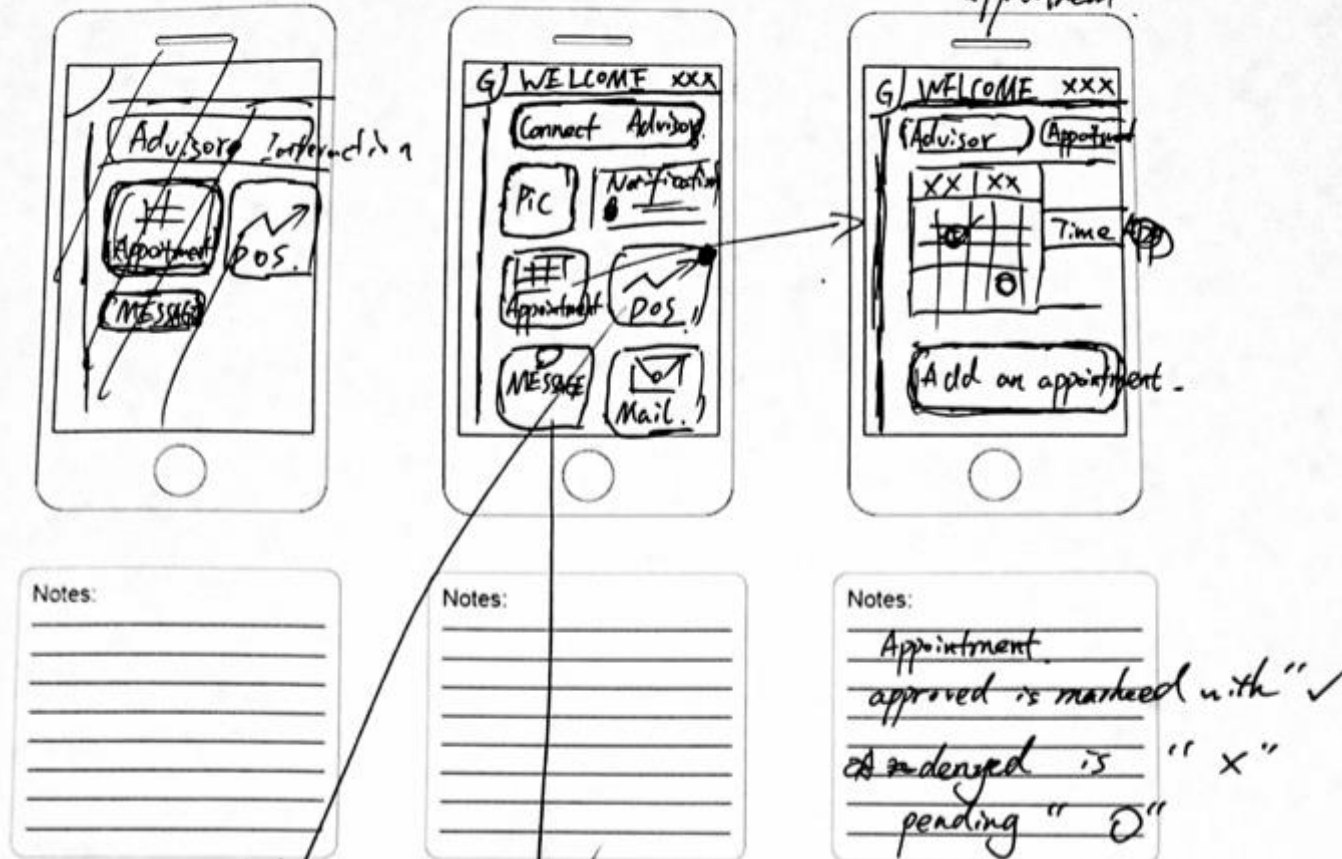 appointment.
Advisor Interaction
Appoitment
POS.
MESSAGE
G WELCOME xxx
Connect Advisor.
Pic
Notification
Appointment
POS.
MESSAGE
Mail.
G WELCOME xxx
Advisor
Appoitment
XX XX
Time
Add an appointment.
Notes:
Notes:
Notes:
Appointment.
approved is marked with "✓
denyed is "x"
pending "O"